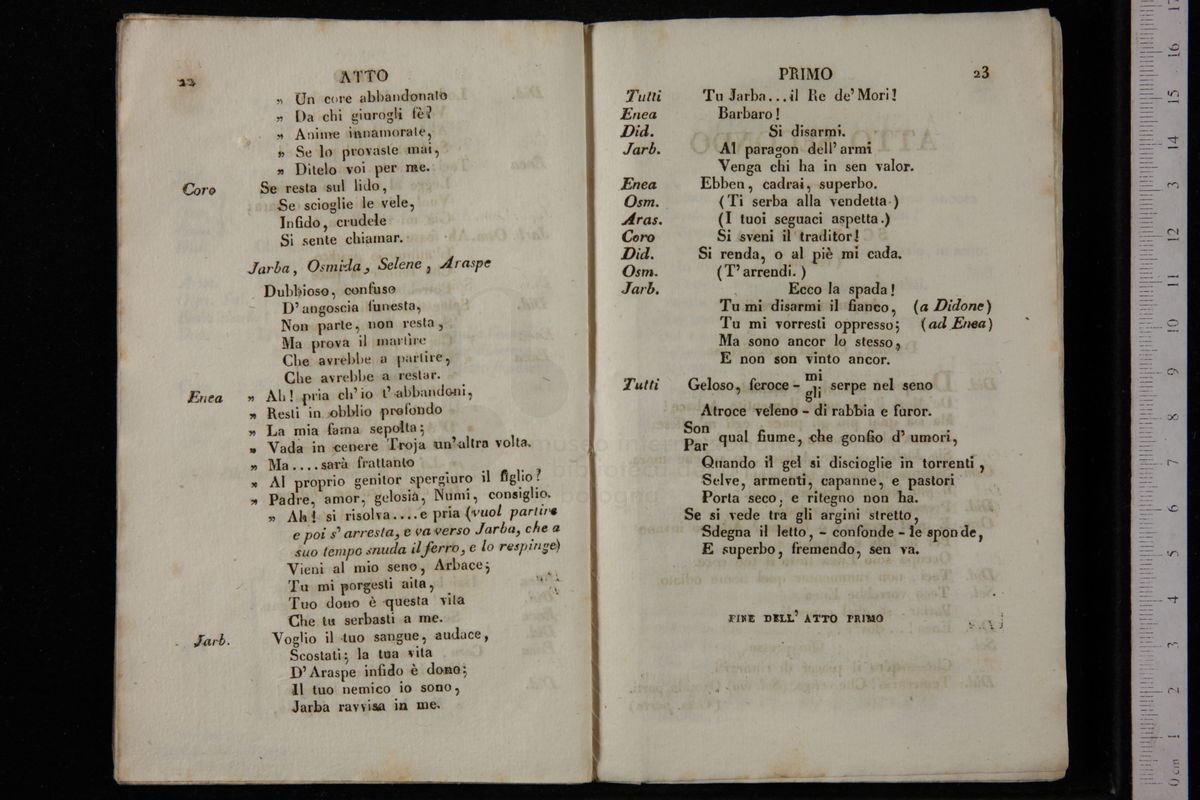 22 ATTO
„ Un core abbandonato
„ Da chi giurogli fè?
„ Anime innamorate,
„ Se lo provaste mai,
„ Ditelo voi per me.
Coro Se resta sul lido,
Se scioglie le vele,
Infido, crudele
Si sente chiamar.
Jarba, Osmida, Selene, Araspe
Dubbioso, confuso
D'angoscia funesta,
Non parte, non resta,
Ma prova il martìre
Che avrebbe a partire,
Che avrebbe a restar.
Enea „ Ah! pria ch'io t'abbandoni,
„ Resti in obblio profondo
„ La mia fama sepolta;
„ Vada in cenere Troja un'altra volta.
„ Ma....sarà frattanto
„ Al proprio genitor spergiuro il figlio?
„ Padre, amor, gelosia, Numi, consiglio.
„ Ah! si risolva....e pria (vuol partire
e poi s'arresta, e va verso Jarba, che a
suo tempo snuda il ferro, e lo respinge)
Vieni al mio seno, Arbace;
Tu mi porgesti aita,
Tuo dono è questa vita
Che tu serbasti a me.
Jarb. Voglio il tuo sangue, audace,
Scostati; la tua vita
D'Araspe infido è dono;
Il tuo nemico io sono,
Jarba ravvisa in me.
PRIMO 23
Tutti Tu Jarba...il Re de'Mori!
Enea Barbaro!
Did. Si disarmi.
Jarb. Al paragon dell'armi
Venga chi ha in sen valor.
Enea Ebben, cadrai, superbo.
Osm. (Ti serba alla vendetta)
Aras. (I tuoi seguaci aspetta.)
Coro Si sveni il traditor!
Did. Si renda, o al piè mi cada.
Osm. (T'arrendi.)
Jarb. Ecco la spada!
Tu mi disarmi il fianco, (a Didone)
Tu mi vorresti oppresso; (ad Enea)
Ma sono ancor lo stesso,
E non son vinto ancor.
Tutti Geloso, feroce - mi gli serpe nel seno
Atroce veleno - di rabbia e furor.
Son Par qual fiume, che gonfio d'umori,
Quando il gel si discioglie in torrenti,
Selve, armenti, capanne, e pastori
Porta seco, e ritegno non ha.
Se si vede tra gli argini stretto,
Sdegna il letto, - confonde - le sponde,
E superbo, fremendo, sen va.
FINE DELL' ATTO PRIMO
museo inter
biblioteca d
bologna
0 cm 1 2 3 4 5 6 7 8 9 10 11 12 13 14 15 16 17